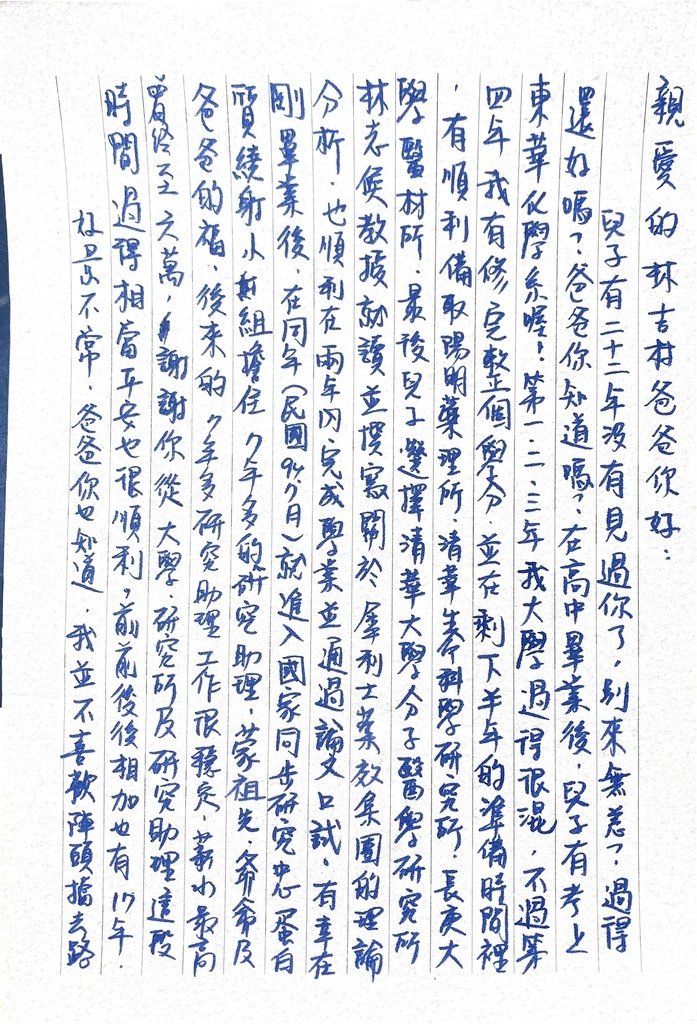 親愛的林吉村爸爸你好：
兒子有二十二年沒有見過你了，別來無恙？過得
還好嗎？爸爸你知道嗎？在高中畢業後，兒子有考上
東華化學系喔！第一、二、三年我大學過得很混，不過第
四年我有修完整個學分，並在剩下半年的準備時間裡
，有順利備取陽明藥理所、清華生命科學研究所、長庚大
學醫材所，最後兒子選擇清華大學分子醫學研究所
林志侯教授就讀並撰寫關於犀利士藥效集團的理論
分析，也順利在兩年內完成學業並通過論文口試。有幸在
剛畢業後，在同年（民國94.7月）就進入國家同步研究中心蛋白
質繞射小組擔任7年多的研究助理，蒙祖先、爺爺及
爸爸的福，後來的7年多研究助理工作很穩定，薪水最高
曾經至六萬，謝謝你從大學、研究所及研究助理這段
時間過得相當平安也很順利，前前後後相加也有17年。
好景不常，爸爸你也知道，我並不喜歡陣頭擋去路